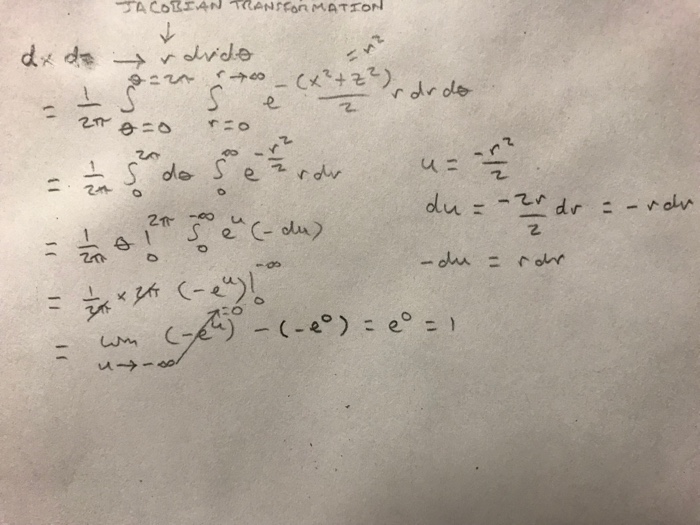 JACOBIAN TRANSFORMATION
↓
dx dz → r dr dθ
= 1/2π ∫_{θ=0}^{θ=2π} ∫_{r=0}^{r→∞} e^{-(x²+z²)/2} r dr dθ = r²
= 1/2π ∫_0^{2π} dθ ∫_0^∞ e^{-r²/2} r dr
u = -r²/2
du = -2r/2 dr = -r dr
= 1/2π θ |_0^{2π} ∫_0^{-∞} e^u (-du)
-du = r dr
= 1/2π × 2π (-e^u)|_0^{-∞}
= lim_{u→-∞} (-e^u)^{=0} - (-e^0) = e^0 = 1